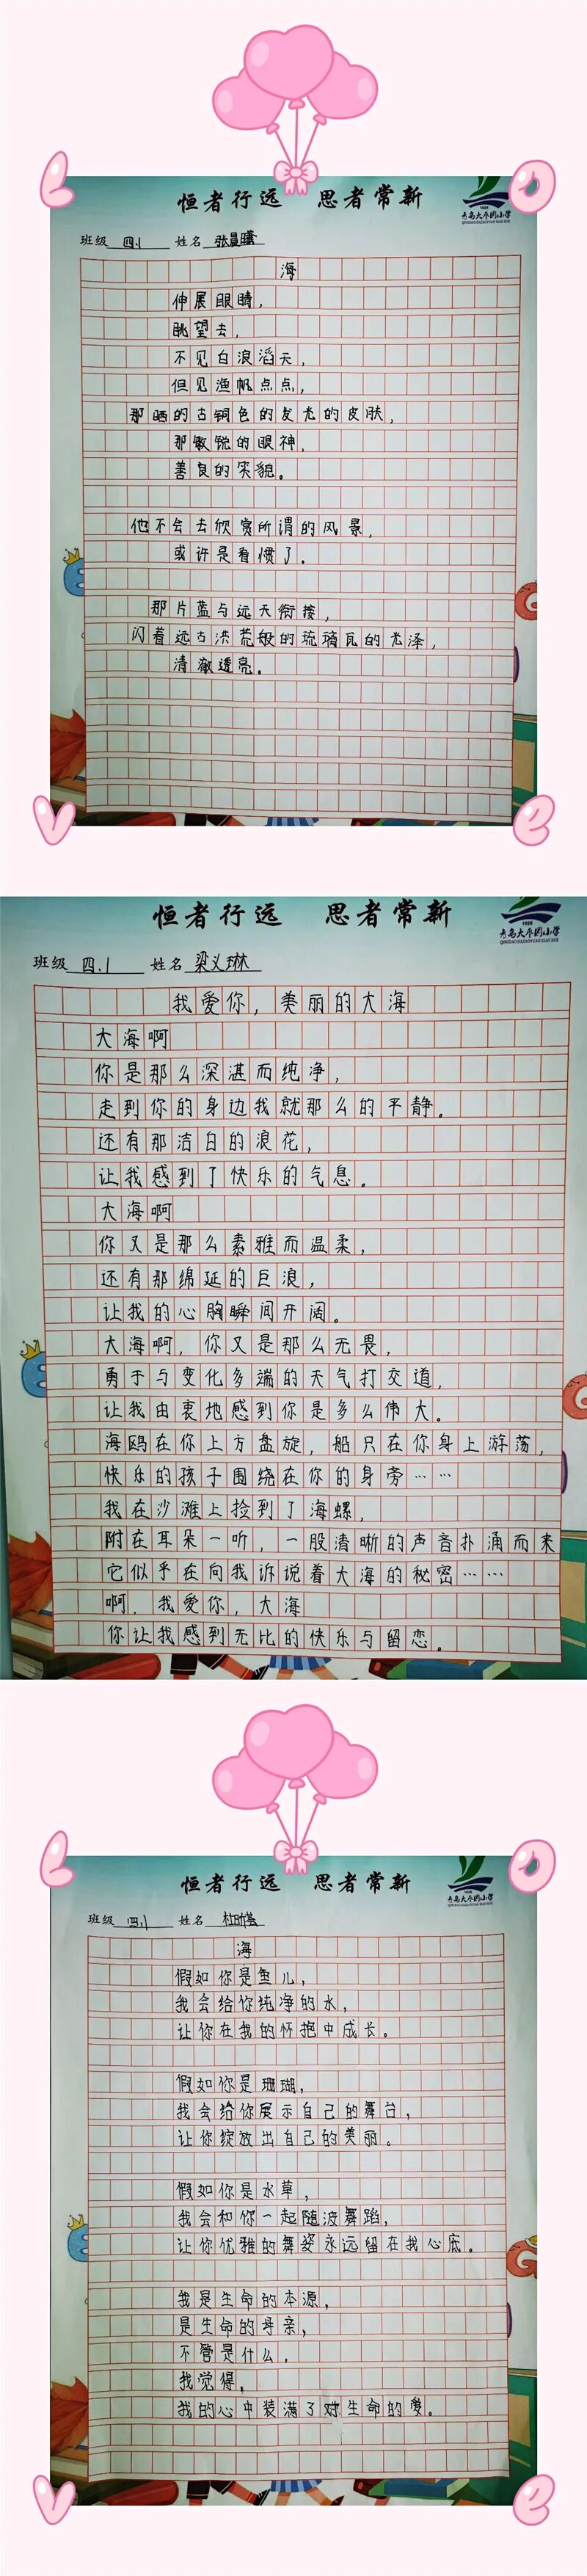 恒者行远 思者常新
1928
青岛大尧阁小学
班级 四.1 姓名 张晨曦
海
伸展眼睛，
眺望去，
不见白浪滔天，
但见渔帆点点，
那晒的古铜色的发光的皮肤，
那敏锐的眼神，
善良的笑貌。
他不会去欣赏所谓的风景，
或许是看惯了.
那片蓝与远天衔接，
闪着远古洪荒般的琉璃瓦的光泽，
清澈透亮。
恒者行远 思者常新
1928
QINGDAO DAZAOYUAN XIAO XUE
班级 四.1 姓名 梁义琳
我爱你，美丽的大海
大海啊
你是那么深湛而纯净，
走到你的身边我就那么的平静。
还有那洁白的浪花，
让我感到了快乐的气息。
大海啊
你又是那么素雅而温柔，
还有那绵延的巨浪，
让我的心胸瞬间开阔。
大海啊，你又是那么无畏，
勇于与变化多端的天气打交道，
让我由衷地感到你是多么伟大。
海鸥在你上方盘旋，船只在你身上游荡，
快乐的孩子围绕在你的身旁……
我在沙滩上捡到了海螺，
附在耳朵一听，一股清晰的声音扑涌而来
它似乎在向我诉说着大海的秘密……
啊，我爱你，大海
你让我感到无比的快乐与留恋。
恒者行远 思者常新
班级 四.1 姓名
海
假如你是鱼儿，
我会给你纯净的水，
让你在我的怀抱中成长。
假如你是珊瑚，
我会给你展示自己的舞台，
让你绽放出自己的美丽。
假如你是水草，
我会和你一起随波舞蹈，
让你优雅的舞姿永远留在我心底。
我是生命的本源，
是生命的母亲，
不管是什么，
我觉得，
我的心中装满了对生命的爱。